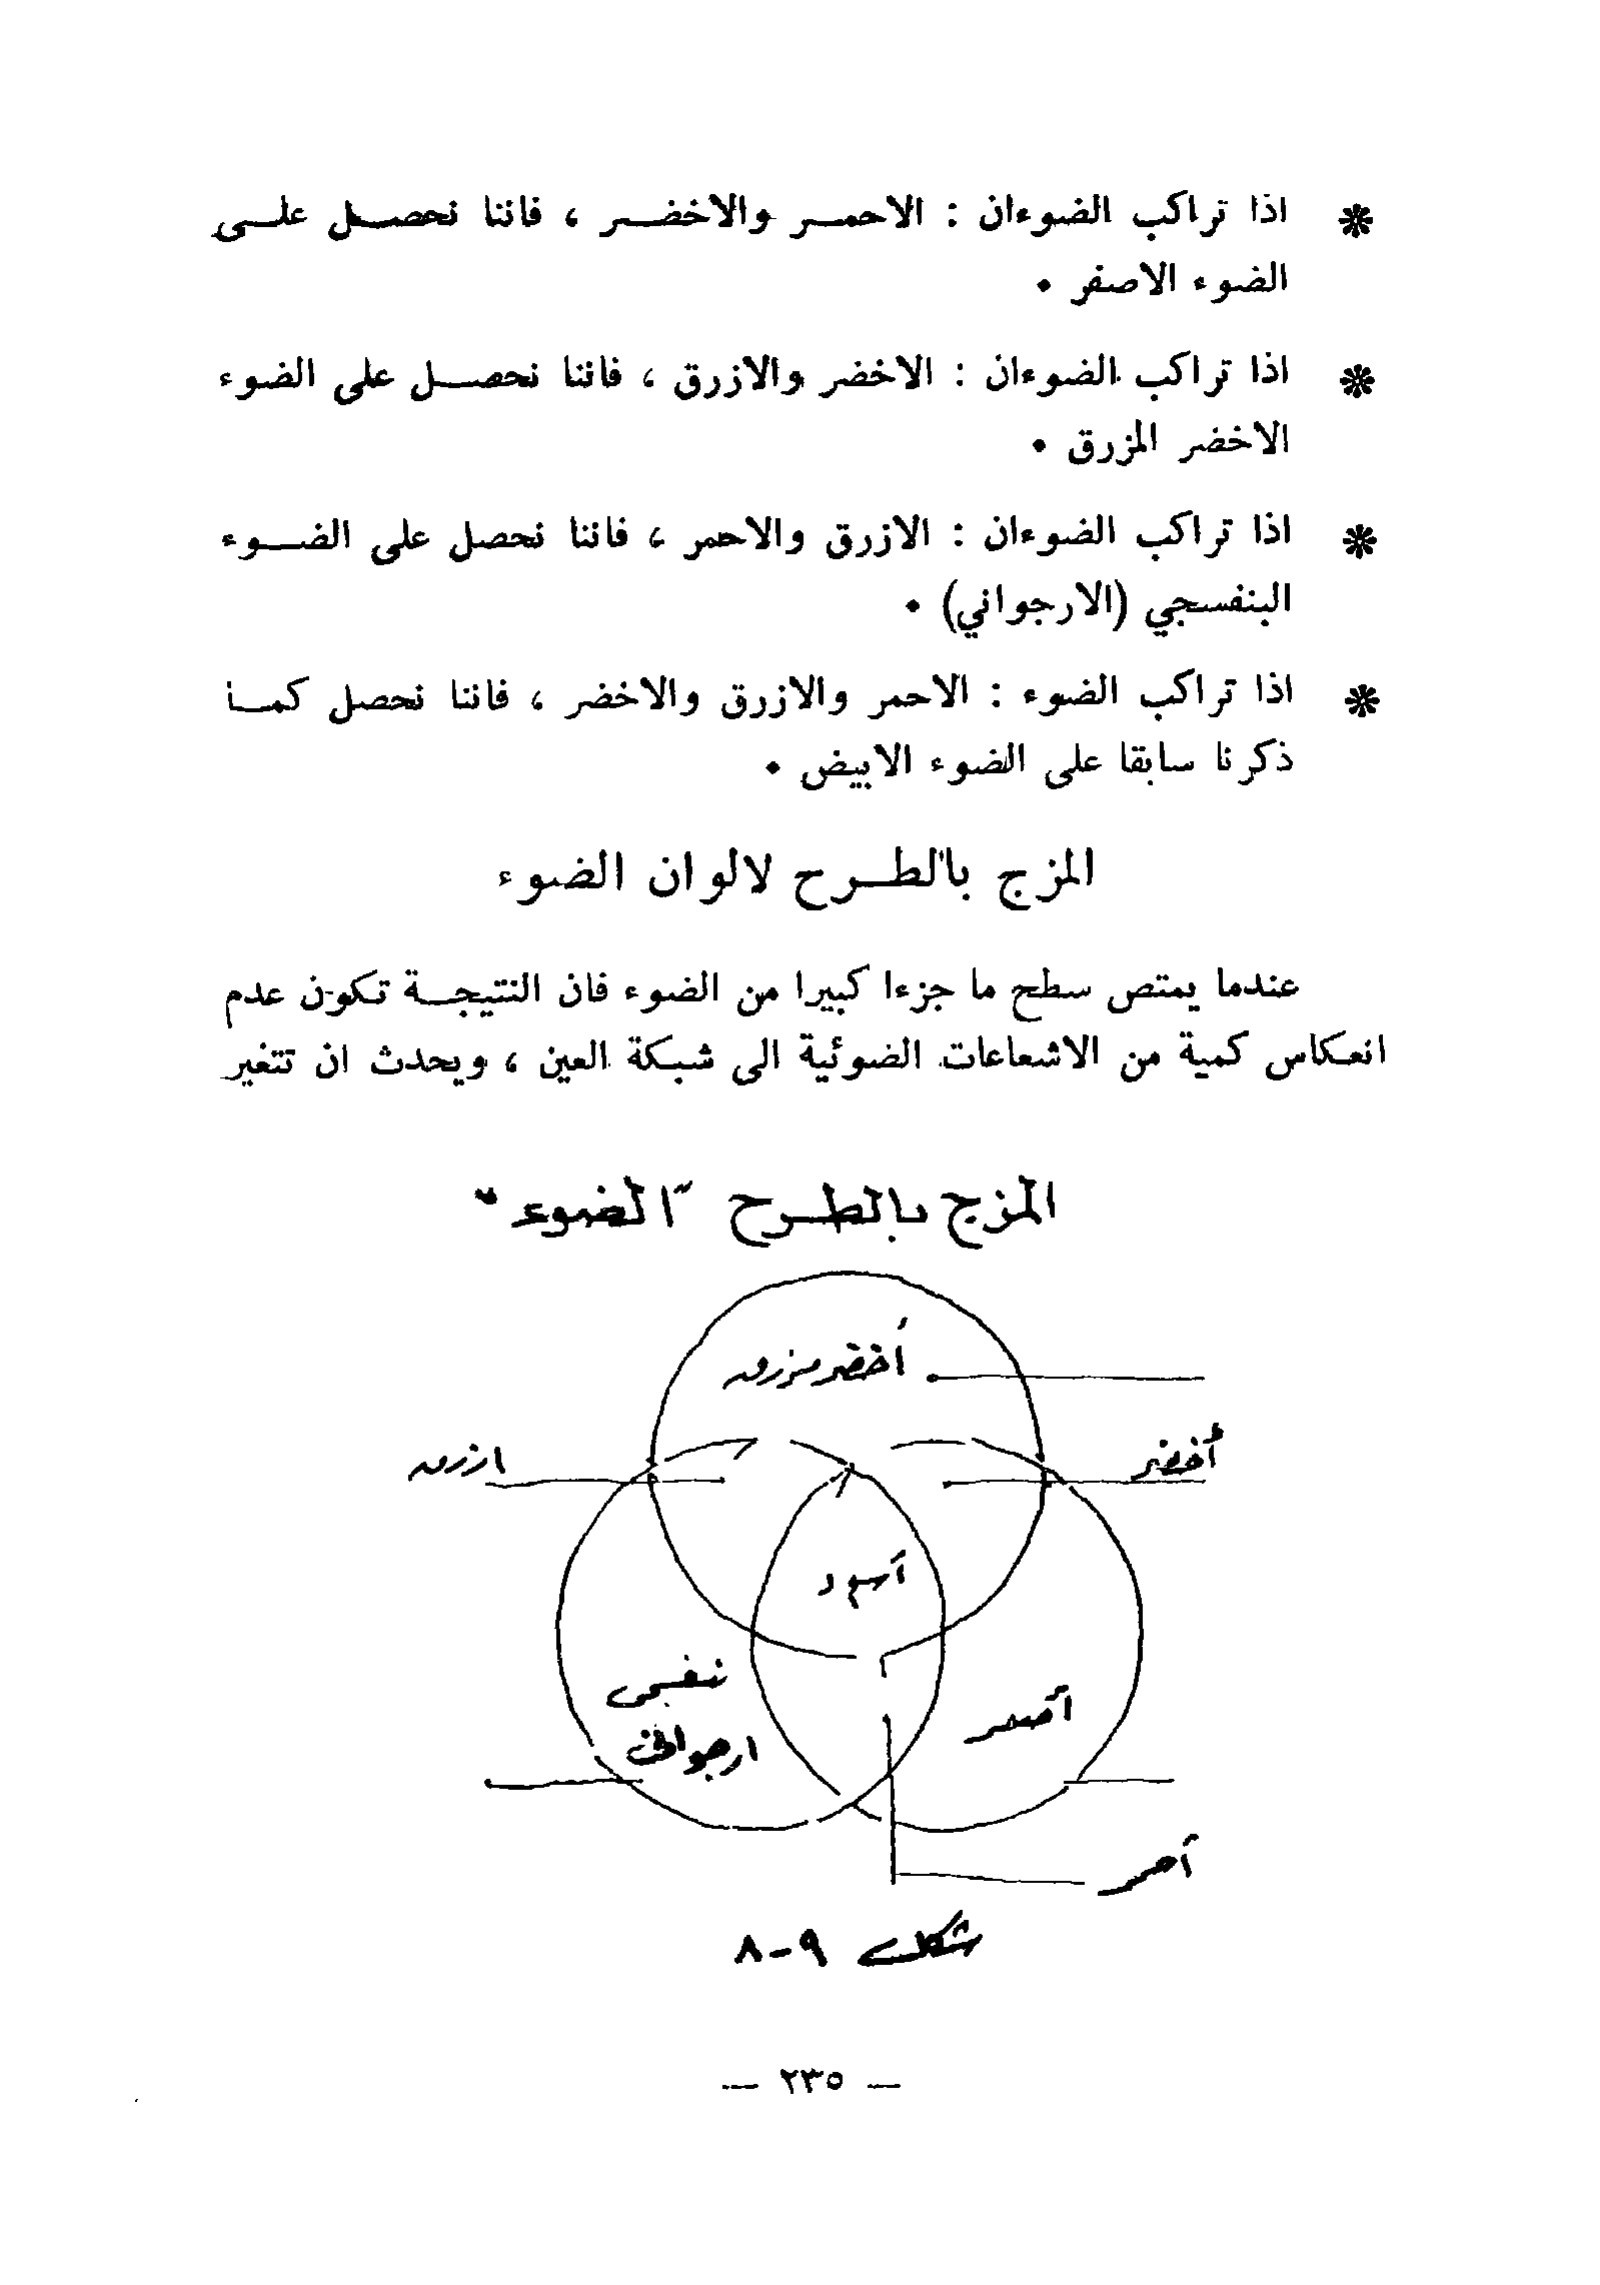 * اذا تراكب الضوءان : الاحمـر والاخضـر ، فاننا نحصـل علـى
الضوء الاصفر .
* اذا تراكب الضوءان : الاخضر والازرق ، فاننا نحصـل على الضوء
الاخضر المزرق .
* اذا تراكب الضوءان : الازرق والاحمر ، فاننا نحصل على الضـوء
البنفسجي (الارجواني) .
* اذا تراكب الضوء : الاحمر والازرق والاخضر ، فاننا نحصل كمـا
ذكرنا سابقا على الضوء الابيض .
المزج بالطـرح لالوان الضوء
عندما يمتص سطح ما جزءا كبيرا من الضوء فان النتيجـة تكون عدم
انعكاس كمية من الاشعاعات الضوئية الى شبكة العين ، ويحدث ان تتغير
المزج بالطـرح "الضوء"
أخضر مزرق
أخضر
ازرق
أسود
بنفسجي
ارجواني
أصفر
أحمر
شكل ٩-٨
— ٢٣٥ —